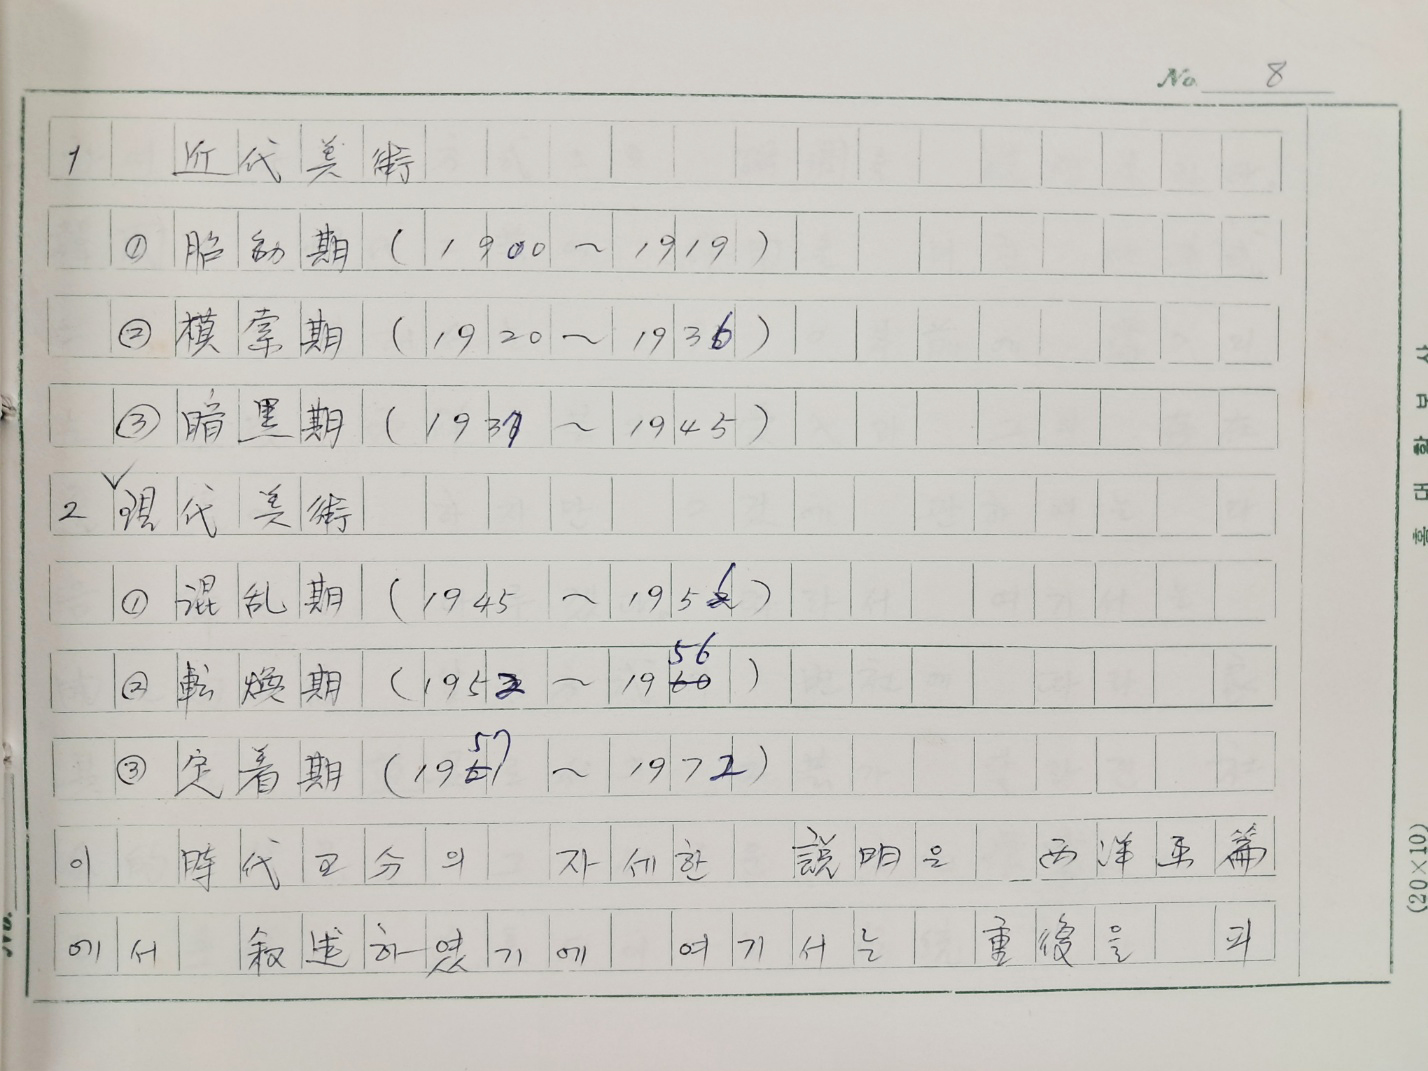 No. 8
1 近代美術
① 胎動期 (1900~1919)
② 模索期 (1920~1936)
③ 暗黒期 (1937~1945)
2 現代美術
① 混乱期 (1945~1956)
② 転換期 (195 ~1956)
③ 定着期 (1957~1972)
이 時代区分의 자세한 説明은 西洋画篇
에서 叙述하였기에 여기서는 重複을 피
(20×10)
No.